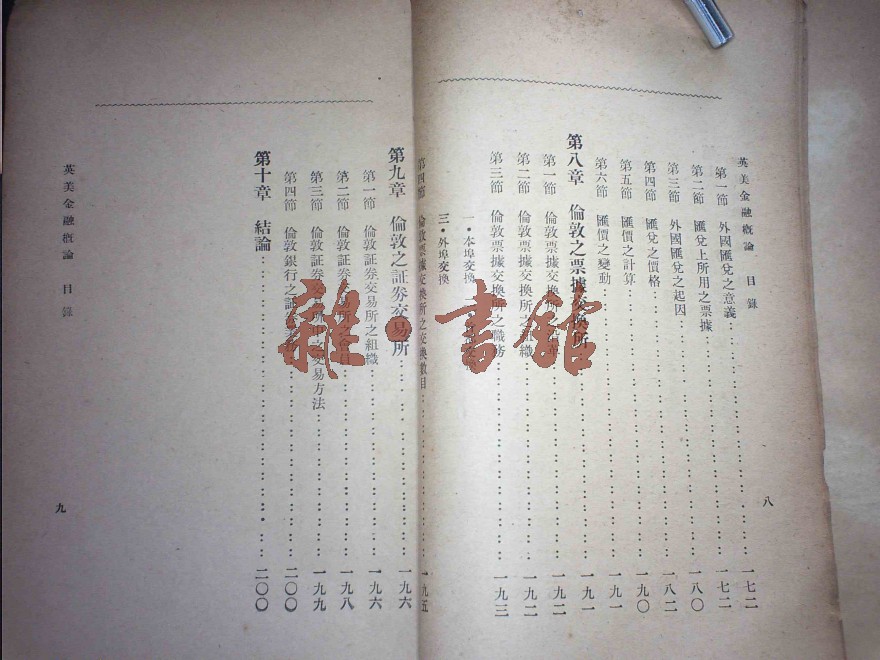 英美金融概論 目錄 八
第一節 外國匯兌之意義……一七二
第二節 匯兌上所用之票據……一七二
第三節 外國匯兌之起因……一八〇
第四節 匯兌之價格……一八二
第五節 匯價之計算……一九〇
第六節 匯價之變動……一九一
第八章 倫敦之票據交換所……一九一
第一節 倫敦票據交換所之……一九二
第二節 倫敦票據交換所之組織……一九二
第三節 倫敦票據交換所之職務……一九三
一・本埠交換
三・外埠交換
第四節 倫敦票據交換所之交換數目……一九五
第九章 倫敦之証券交易所……一九六
第一節 倫敦証券交易所之組織……一九六
第二節 倫敦証券交易所之會員……一九八
第三節 倫敦証券交易所之交易方法……一九九
第四節 倫敦銀行之証券……二〇〇
第十章 結論……二〇〇
英美金融概論 目錄 九
雜・書館